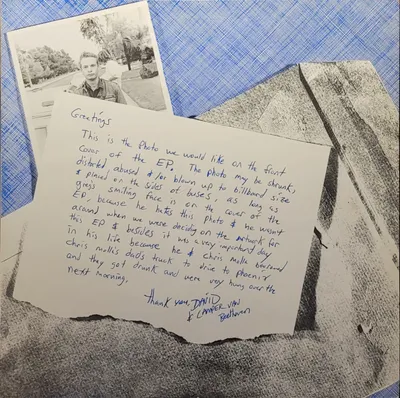 Greetings
This is the Photo we would like on the front
cover of the EP. The photo may be shrunk,
distorted abused &/or blown up to billboard size
& placed on the sides of buses, as long as
greg's smiling face is on the cover of the
EP, because he hates this photo & he wasn't
around when we were deciding on the artwork for
this EP & besides it was a very important day
in his life because he & chris molla borrowed
chris molla's dad's truck to drive to phoenix
and they got drunk and were very hung over the
next morning.
thank you, DAVID
& CAMPER VAN
Beethoven